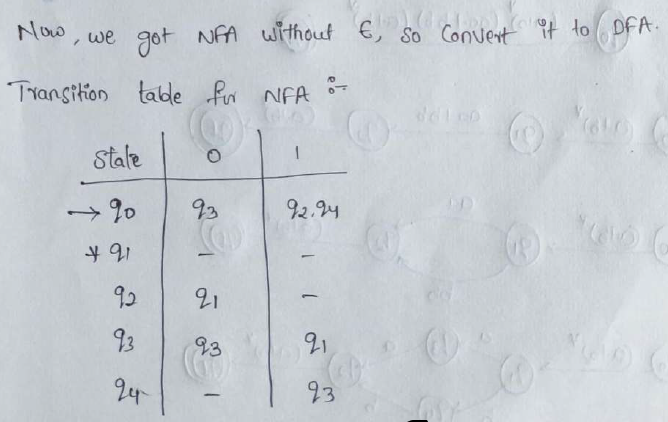 Now, we got NFA without ε, so Convert it to DFA.
Transition table for NFA :-
State 0 1
→ q0 q3 q2,q4
* q1 - -
q2 q1 -
q3 q3 q1
q4 - q3